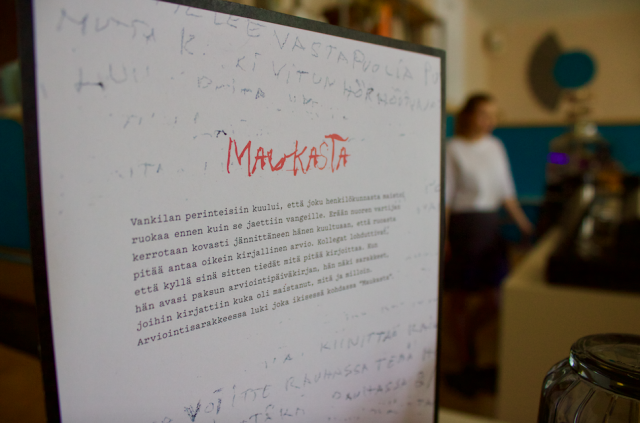 VASTAPUOLIA
MUTTA K. KI VITUN
MAUKASTA
Vankilan perinteisiin kuului, että joku henkilökunnasta maistoi
ruokaa ennen kuin se jaettiin vangeille. Erään nuoren vartijan
kerrotaan kovasti jännittäneen hänen kuultuaan, että ruoasta
pitää antaa oikein kirjallinen arvio. Kollegat lohduttivat,
että kyllä sinä sitten tiedät mitä pitää kirjoittaa. Kun
hän avasi paksun arviointipäiväkirjan, hän näki sarakkeen,
joihin kirjattiin kuka oli maistanut, mitä ja milloin.
Arviointisarakkeessa luki joka ikisessä kohdassa "Maukasta".
KIINITTÄÄ
VOITTE RAUHASSA TEHÄ
RAUHASSA